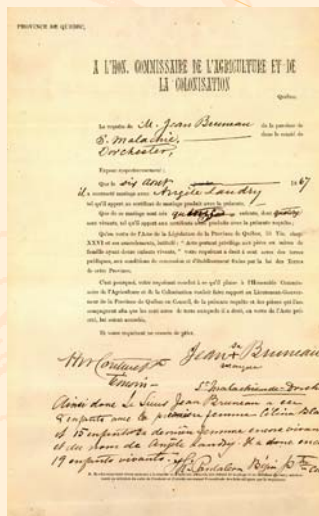 PROVINCE DE QUÉBEC,
A L'HON. COMMISSAIRE DE L'AGRICULTURE ET DE
LA COLONISATION
Québec,
La requête de M. Jean Bruneau de la paroisse de
S. Malachie, dans le comté de
Dorchester,
Expose respectueusement :
Que le six Aout 1867
il a contracté mariage avec Angèle Landry
tel qu'il appert au certificat de mariage produit avec la présente.
Que de ce mariage sont nés enfants, dont
sont vivants, tel qu'il appert aux certificats produits avec la présente requête ;
Qu'en vertu de l'Acte de la Législature de la Province de Québec, 53 Vic. chap.
XXVI et ses amendements, intitulé : "Acte portant privilège aux pères ou mères de
famille ayant douze enfants vivants," votre requérant a droit à cent acres de terres
publiques, aux conditions de concession et d'établissement fixées par la loi des Terres
de cette Province.
C'est pourquoi, votre requérant conclut à ce qu'il plaise à l'Honorable Commis-
saire de l'Agriculture et de la Colonisation vouloir faire rapport au Lieutenant-Gouver-
neur de la Province de Québec en Conseil, de la présente requête et des pièces qui l'ac-
compagnent afin que les cent acres de terre auxquels il a droit, en vertu de l'Acte pré-
cité, lui soient accordés.
Et votre requérant ne cessera de prier.
Jean x Bruneau
marque
Témoin
St Malachie de Dorch
Ainsi donc Le Sieur Jean Bruneau a eu
4 enfants avec la première femme Célina Bla
et 15 enfants de dernière femme encore vivan
et du nom de Angèle Landry. Il a donc en
19 enfants vivants.